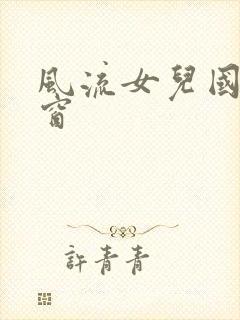 風流女兒國
窗
許青青